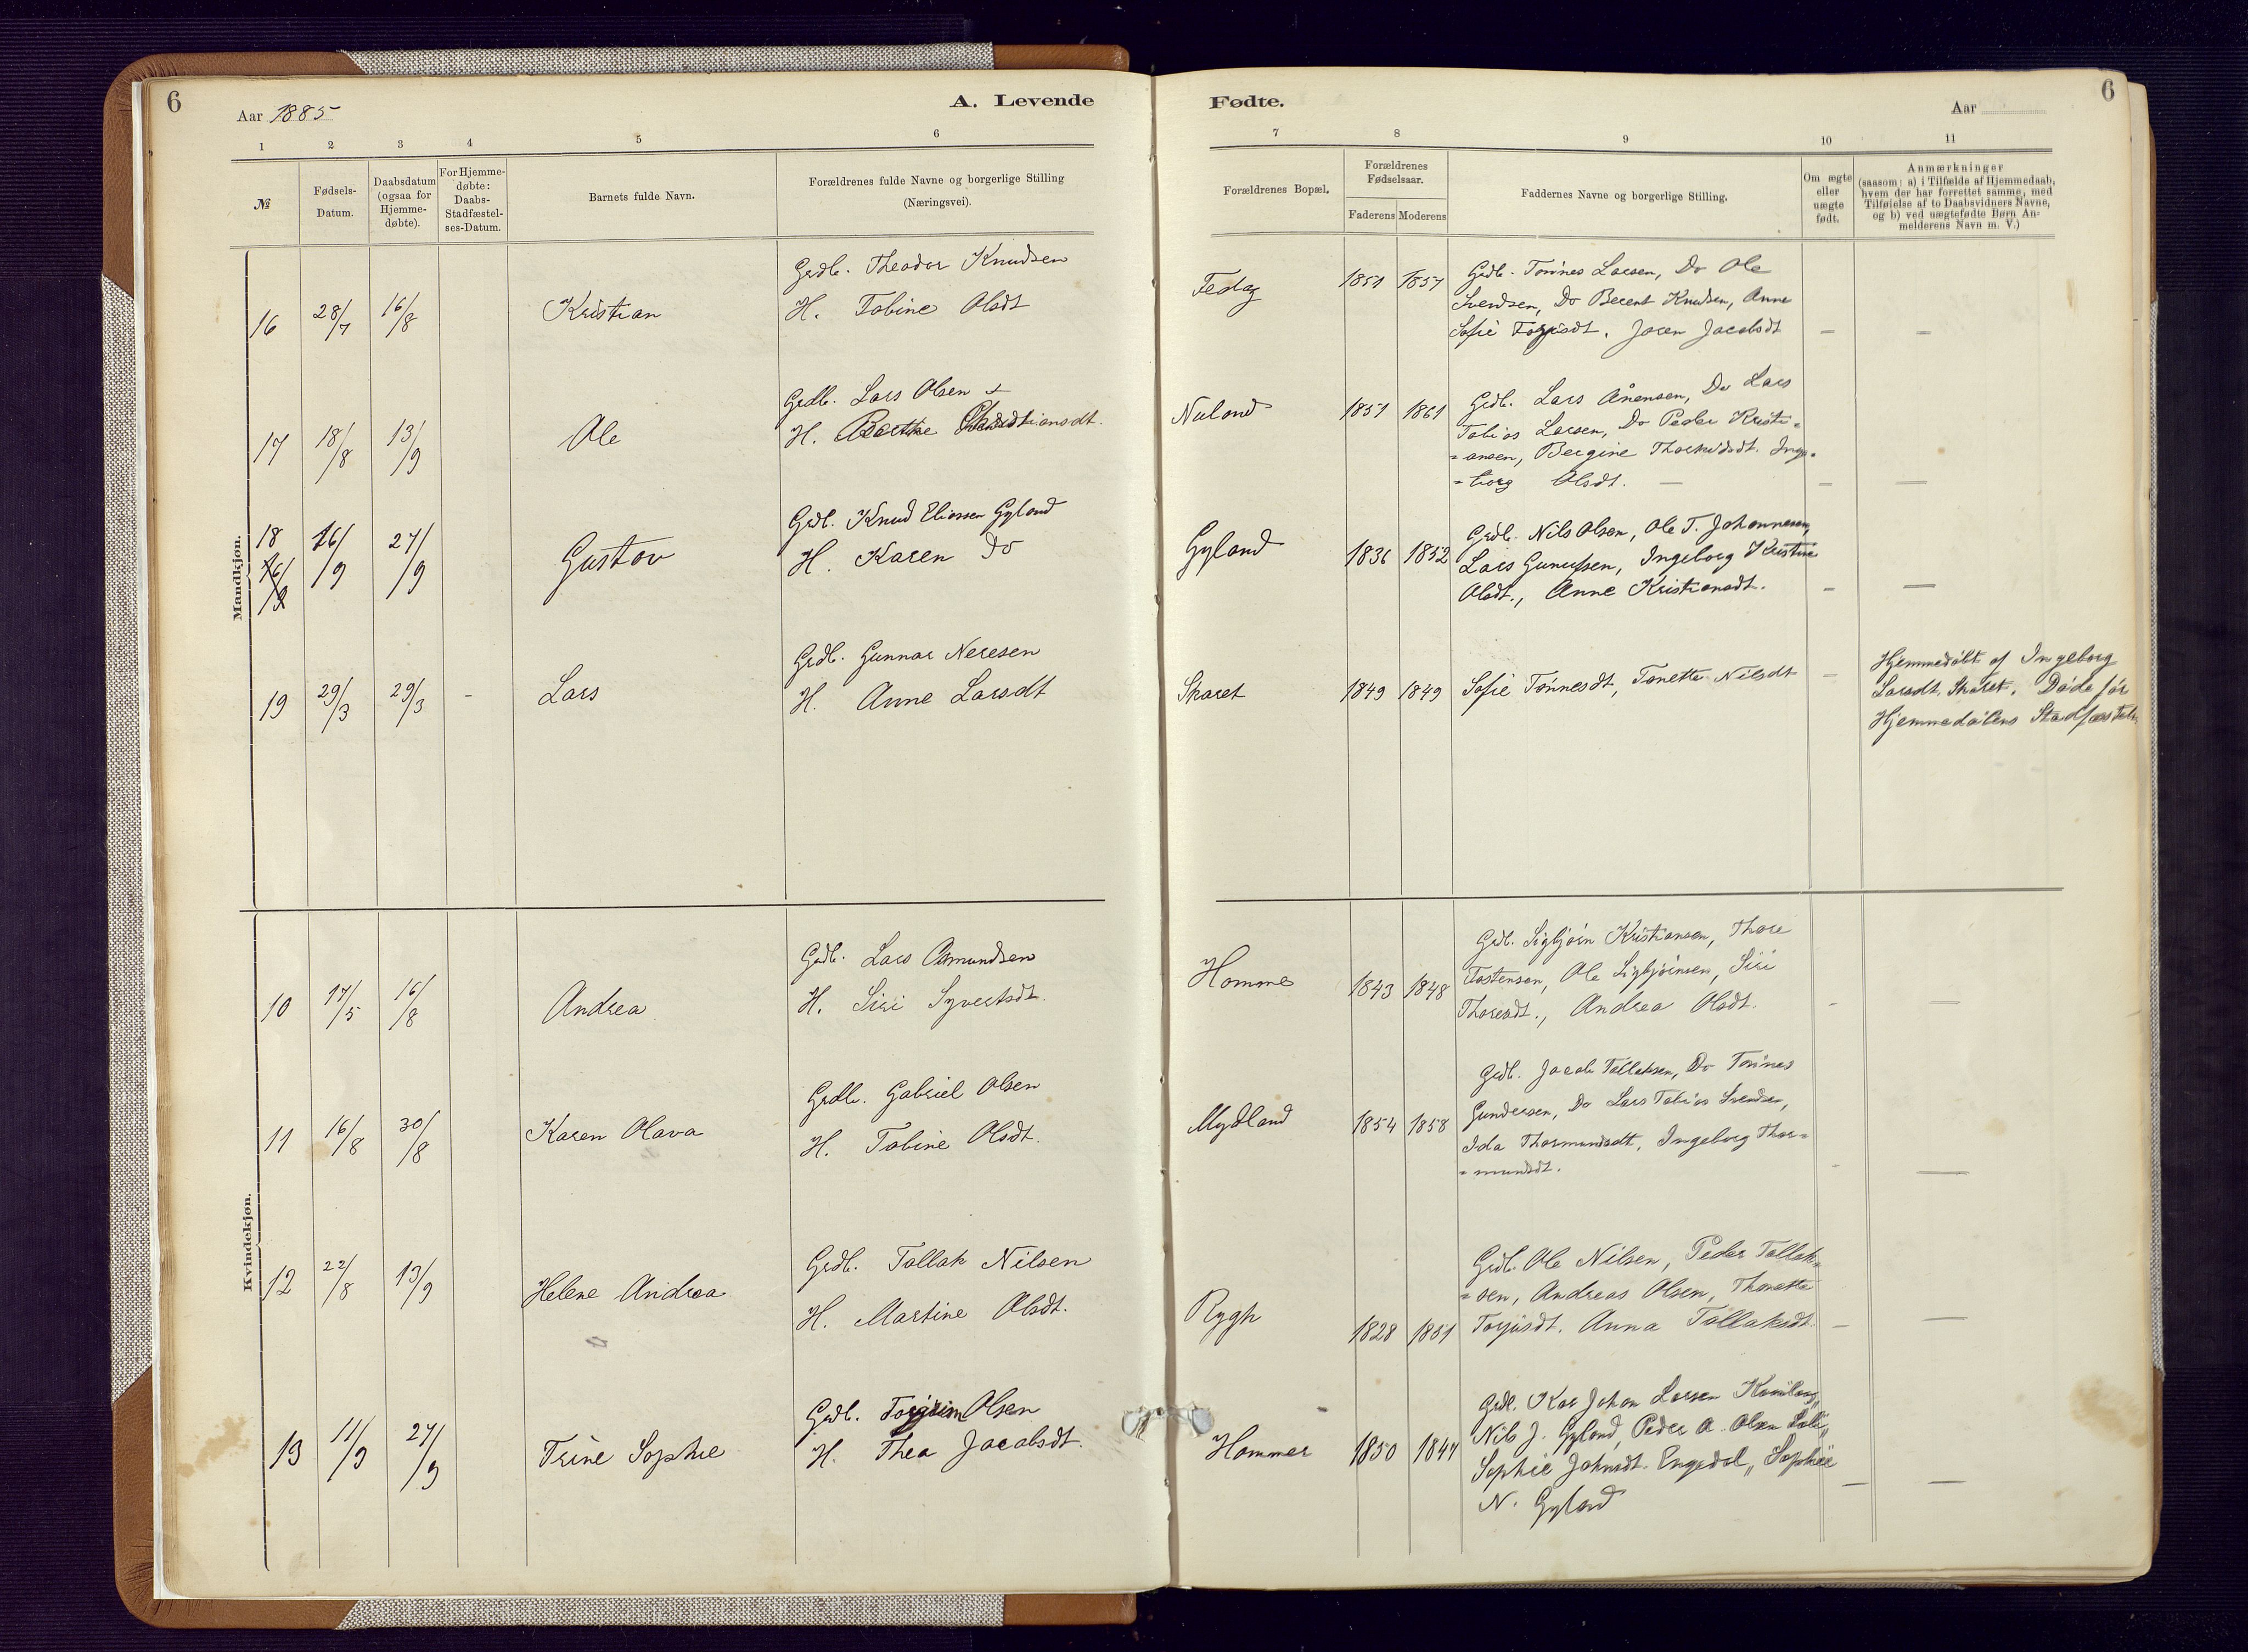 6
Aar 1885
A. Levende
1 2 3 4 5 6
№
Fødsels-
Datum.
Daabsdatum
(ogsaa for
Hjemme-
døbte).
For Hjemme-
døbte:
Daabs-
Stadfæstel-
ses-Datum.
Barnets fulde Navn.
Forældrenes fulde Navne og borgerlige Stilling
(Næringsvei).
Mandkjøn.
Grdb. Theodor Knudsen
16 28/7 16/8 Kristian H. Tobine Olsdt
Grdb. Lars Olsen +
17 18/8 13/9 Ole H. Berthe Christiansdt.
Grdb. Knud Eliassen Gyland
18 16/9 27/9 Gustav H. Karen Do
16/9
Grdb. Gunnar Neresen
19 29/3 29/3 - Lars H. Anne Larsdt
Kvindekjøn.
Grdb. Lars Asmundsen
10 17/5 16/8 Andrea H. Siri Syvertsdt.
Grdb. Gabriel Olsen
11 16/8 30/8 Karen Olava H. Tobine Olsdt.
Grdb. Tallak Nilsen
12 22/8 13/9 Helene Andrea H. Martine Olsdt.
Grdb. Torgrim Olsen
13 11/9 27/9 Trine Sophie H. Thea Jacobsdt.
Fødte.
Aar
6
7 8 9 10 11
Forældrenes Bopæl.
Forældrenes
Fødselsaar.
Faderens Moderens
Faddernes Navne og borgerlige Stilling.
Om ægte
eller
uægte
født.
Anmærkninger
(saasom: a) i Tilfælde af Hjemmedaab,
hvem der har forrettet samme, med
Tilføielse af to Daabsvidners Navne,
og b) ved uægtefødte Børn An-
melderens Navn m. V.)
Fedog 1851 1857 Grdb. Tønnes Larsen, Do Ole
Svendsen, Do Berent Knudsen, Anne
Sofie Torjusdt. Joren Jacobsdt - -
Nuland 1851 1861 Grdb. Lars Ånensen, Do Lars
Tobias Larsen, Do Peder Kristi=
=ansen, Bergine Thorkildsdt. Inge=
=borg Olsdt. - - -
Gyland 1836 1852 Grdb. Nils Olsen, Ole T. Johannesen,
Lars Gunufsen, Ingeborg Kristine
Olsdt., Anne Kristiansdt. - -
Skaret 1849 1849 Sofie Tønnesdt, Tonette Nilsdt -
Hjemmedøbt af Ingeborg
Larsdt. Skaret. Døde før
Hjemmedåbens Stadfæstelse
Homme 1843 1848 Grdb. Sigbjørn Kristiansen, Thore
Tostensen, Ole Sigbjørnsen, Siri
Thoresdt., Andrea Olsdt. - -
Mydland 1854 1858 Grdb. Jacob Tallaksen, Do Tønnes
Gundersen, Do Lars Tobias Svendsen,
Ida Thormundsdt, Ingeborg Thor=
=mundsdt. - -
Rygh 1828 1851 Grdb. Ole Nilsen, Peder Tallak=
=sen, Andreas Olsen, Thonette
Torjusdt. Anna Tallaksdt. - -
Hammer 1850 1847 Grdb. Kar Johan Larsen
Nils J. Gyland, Peder A. Olsen
Sophie Johnsdt. Engedal, Sophie
N. Gyland - -